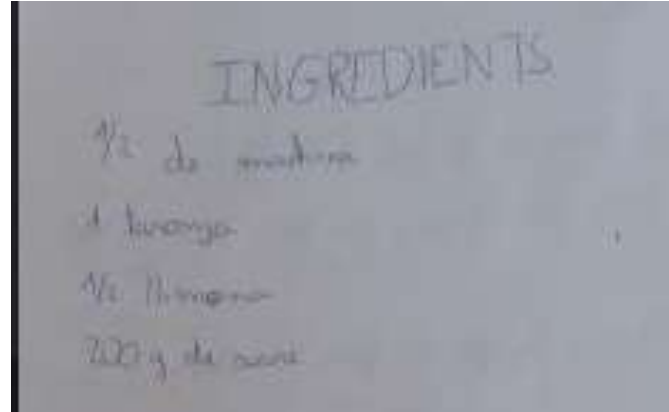 INGREDIENTS
1/2 de
1 taronja
1/2 llimona
200 g de sucre